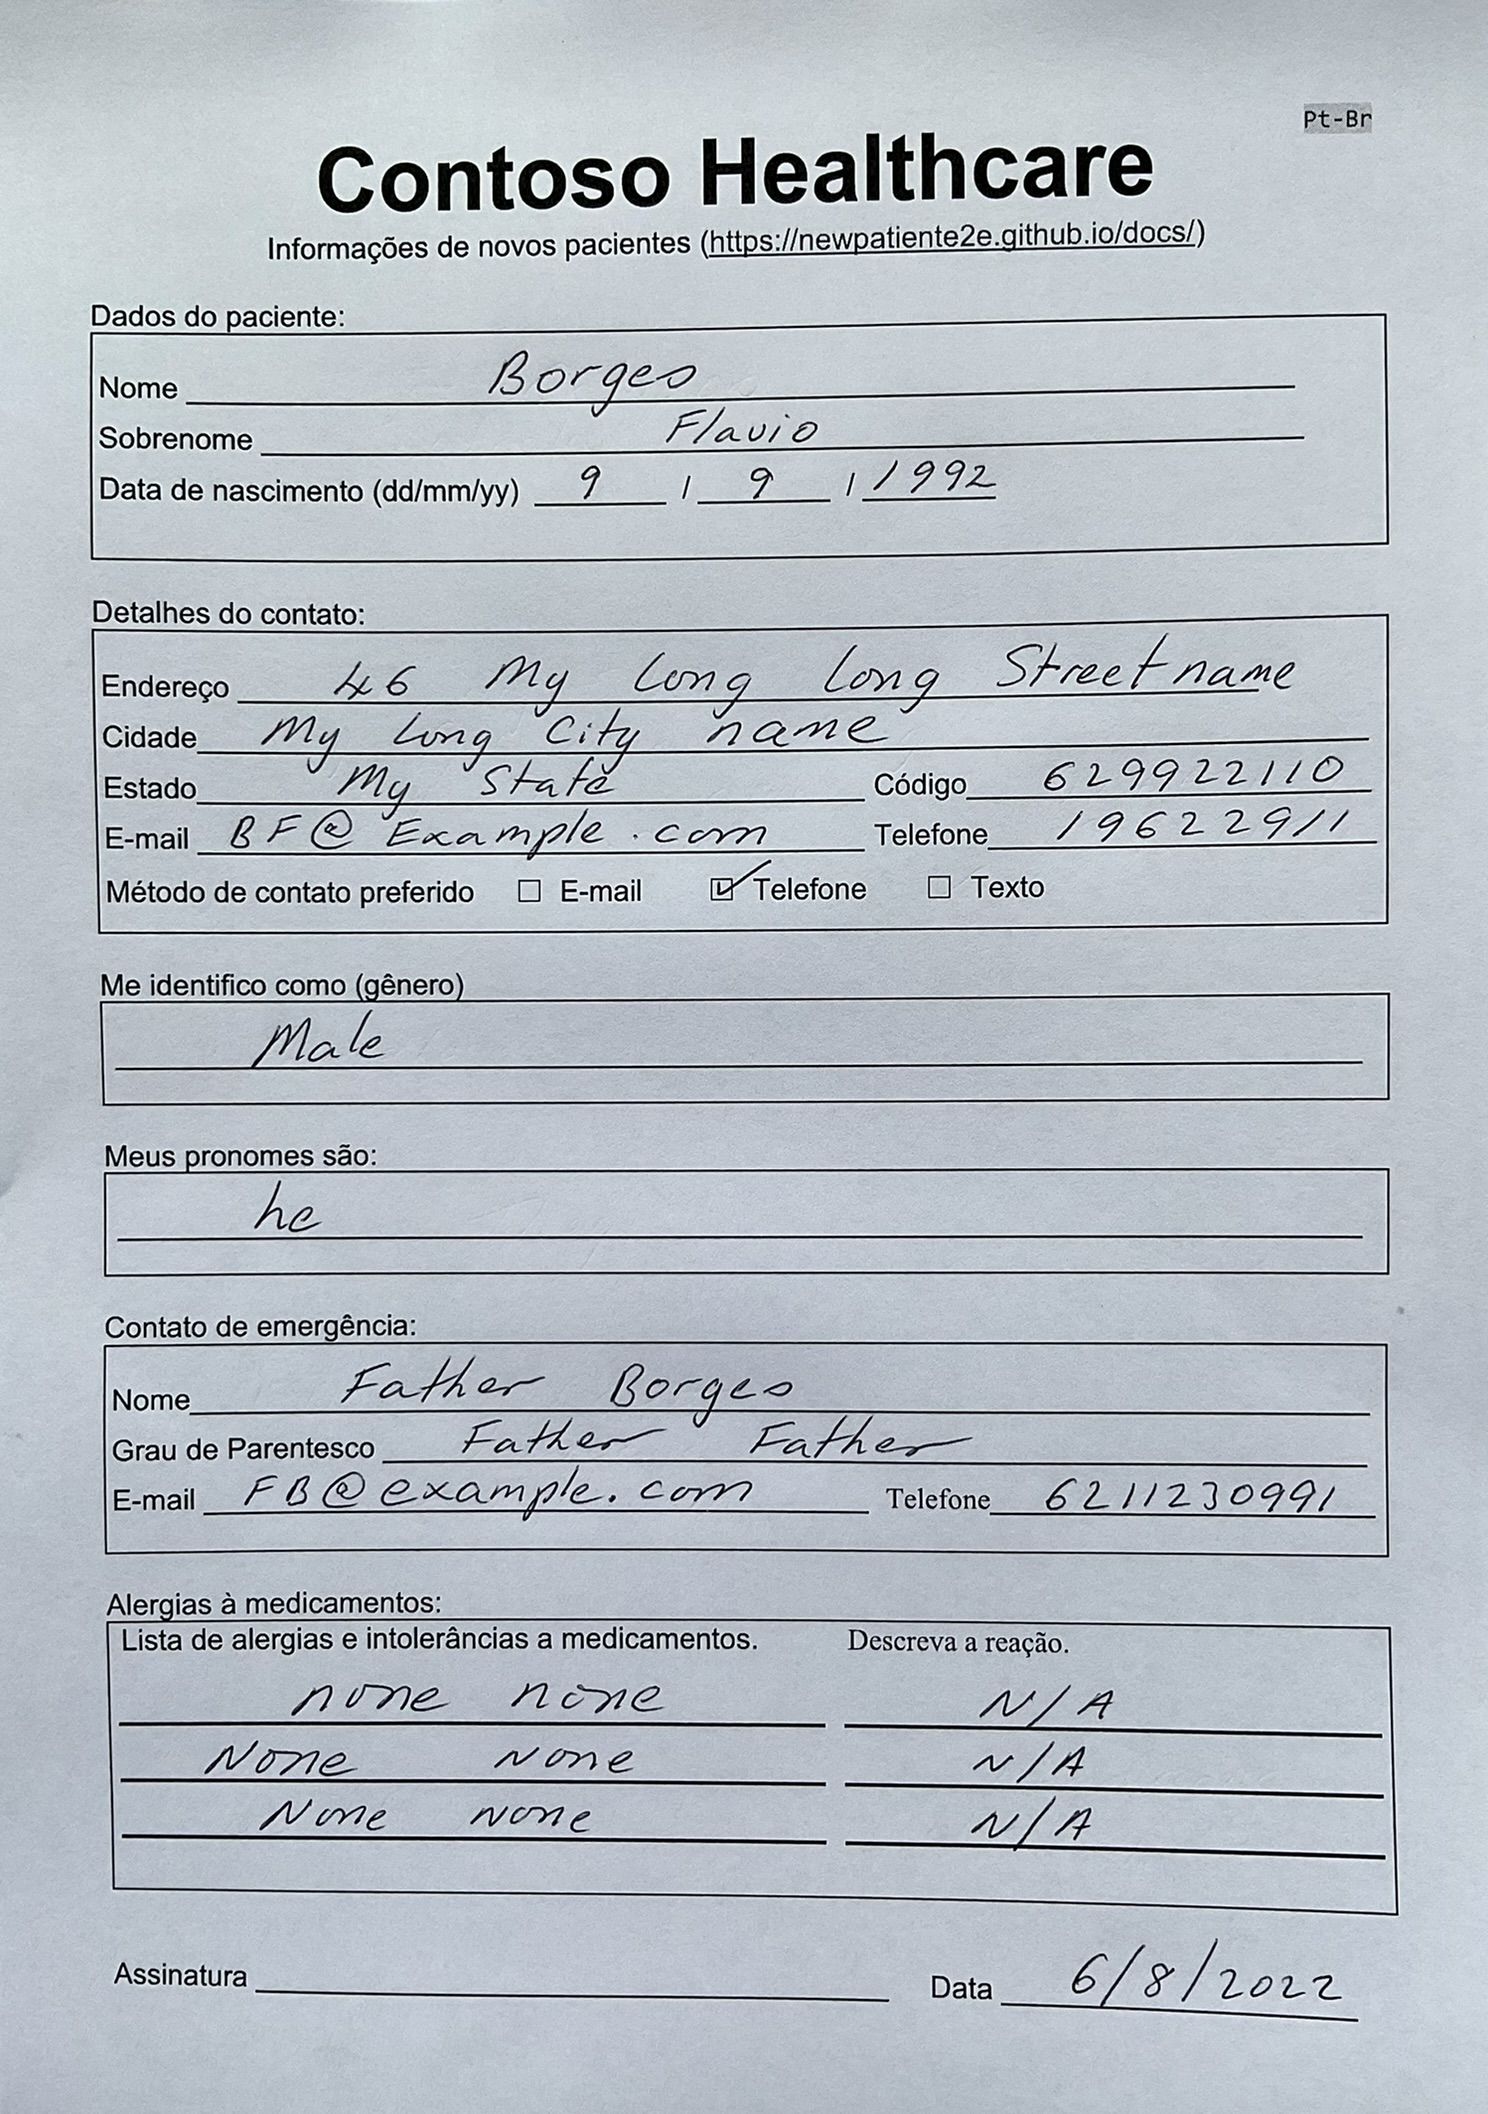 Pt-Br
Contoso Healthcare
Informações de novos pacientes (https://newpatiente2e.github.io/docs/)
Dados do paciente:
Nome Borges
Sobrenome Flavio
Data de nascimento (dd/mm/yy) 9 / 9 / 1992
Detalhes do contato:
Endereço 46 My Long Long Street name
Cidade My Long City name
Estado My State Código 629922110
E-mail BF@Example.com Telefone 19622911
Método de contato preferido ☐ E-mail ☑ Telefone ☐ Texto
Me identifico como (gênero)
Male
Meus pronomes são:
he
Contato de emergência:
Nome Father Borges
Grau de Parentesco Father Father
E-mail FB@example.com Telefone 6211230991
Alergias à medicamentos:
Lista de alergias e intolerâncias a medicamentos. Descreva a reação.
none none N/A
None None N/A
None none N/A
Assinatura Data 6/8/2022